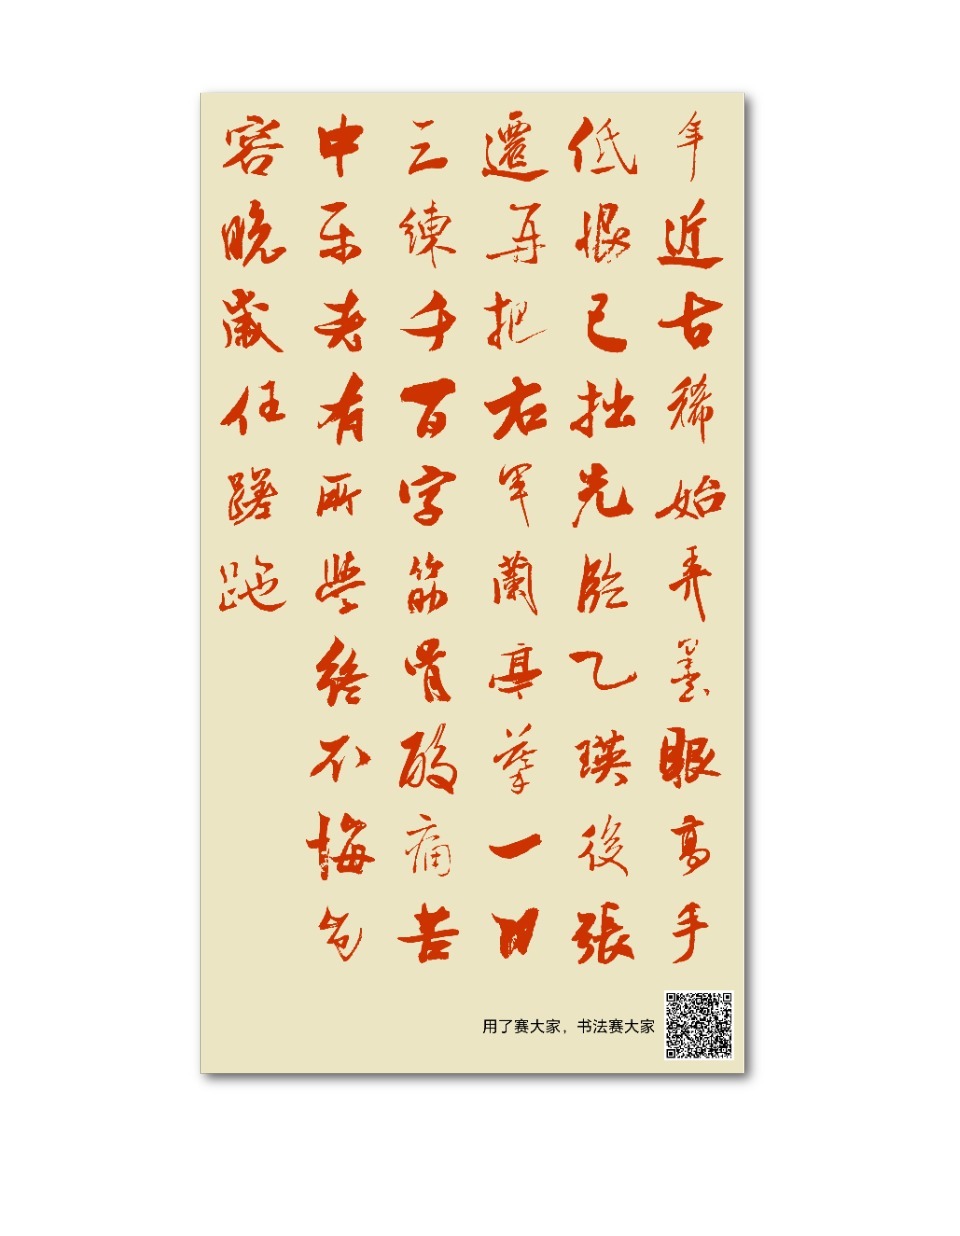 年近古稀始弄墨眼高手
低恨已拙先臨乙瑛後張
遷再把右軍蘭亭摹一日
三練千百字筋骨酸痛苦
中乐老有所學終不悔包
容晚歲任蹉跎
用了赛大家，书法赛大家